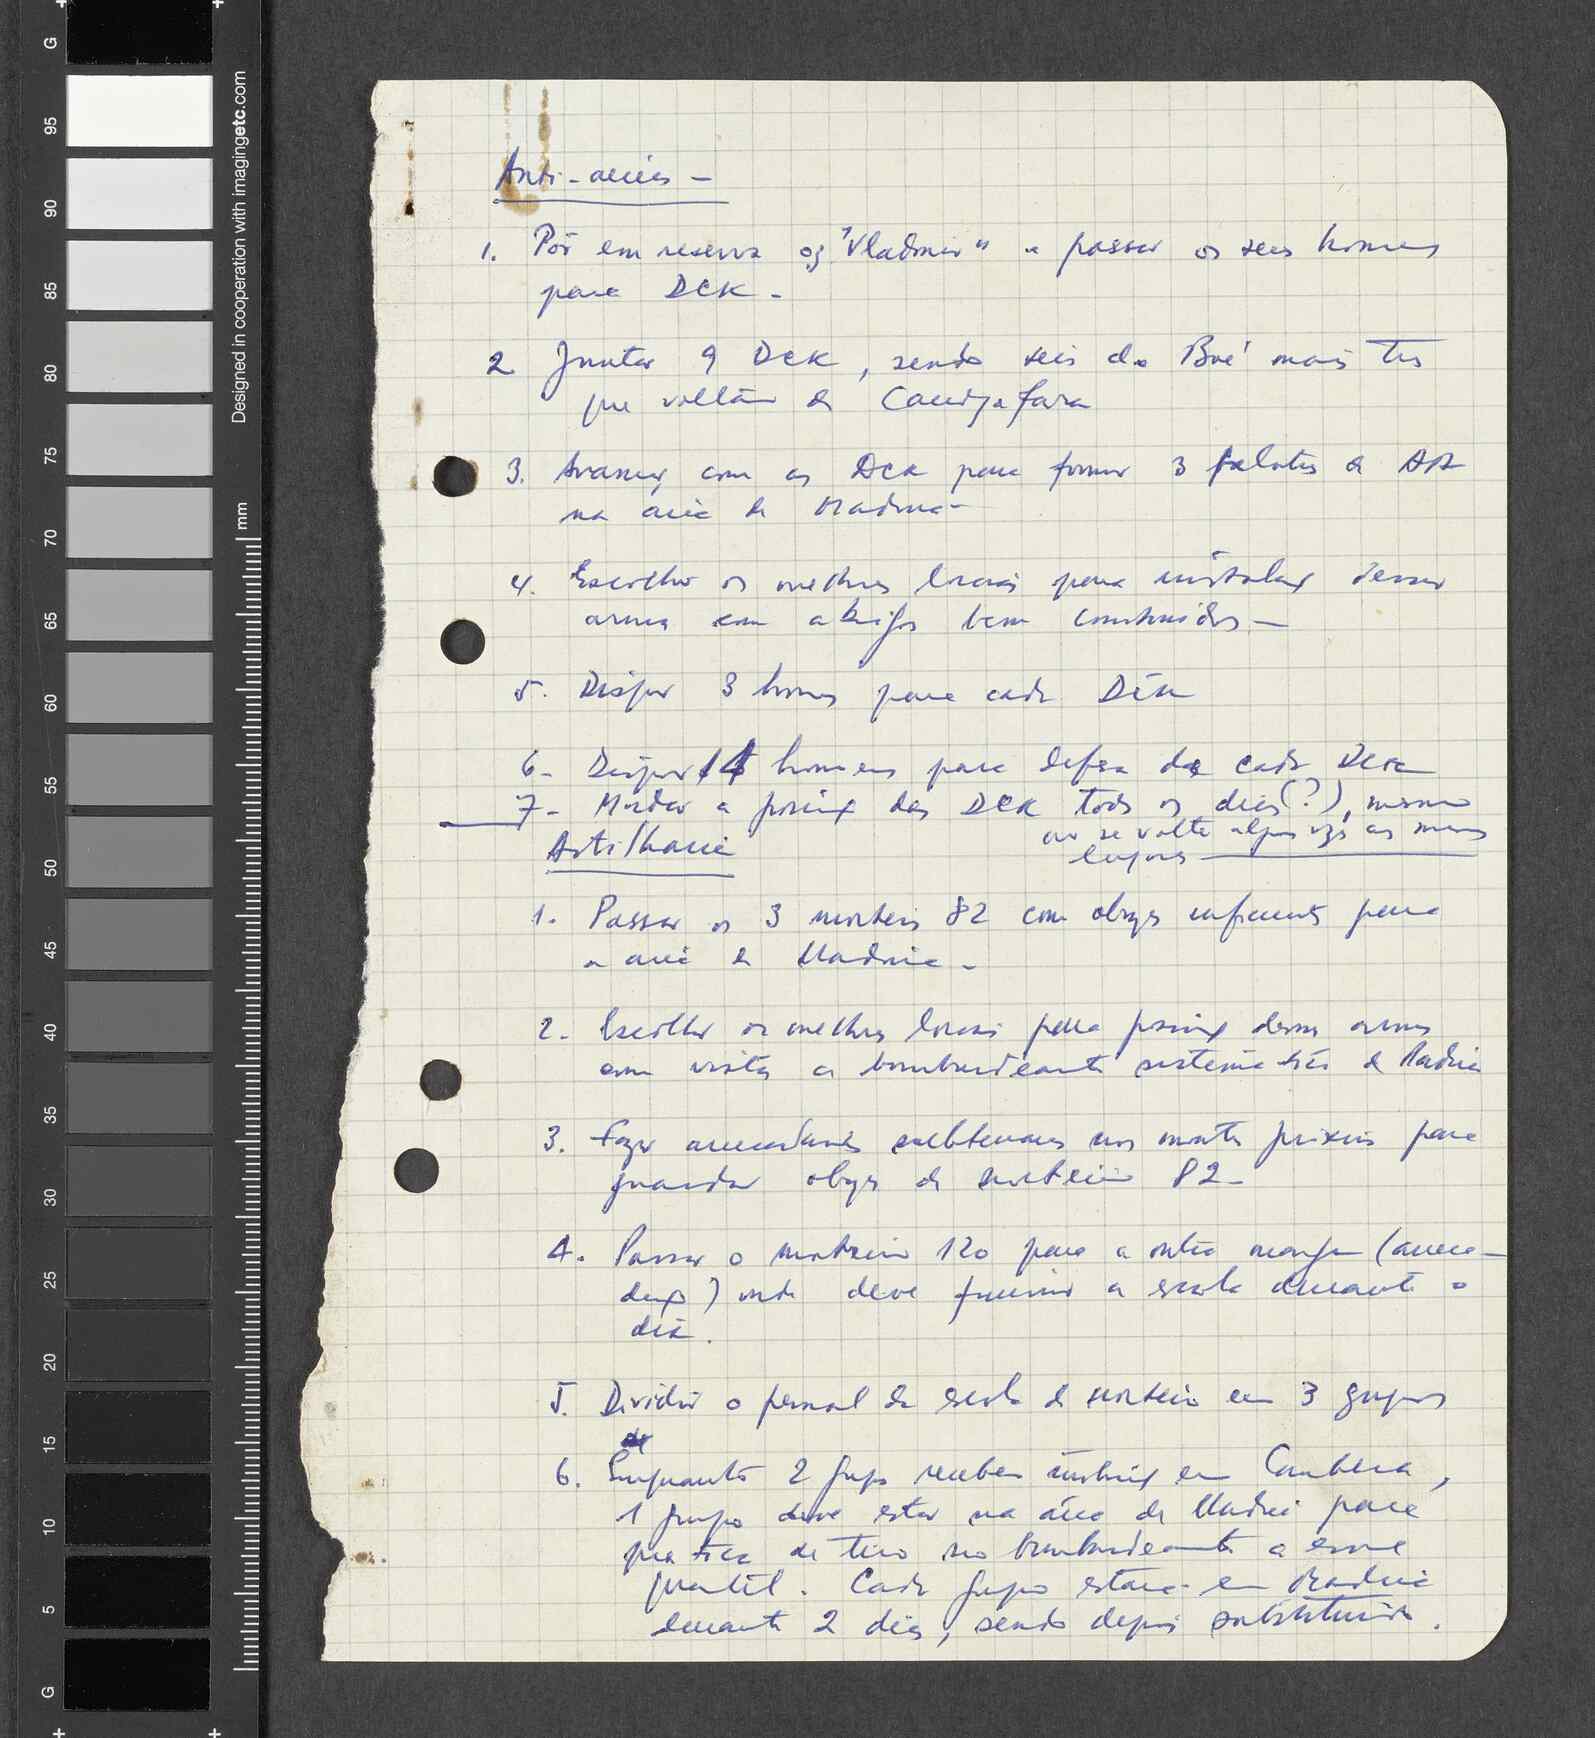 Anti-aérea -
1. Pôr em reserva os "Vladimir" e passar os seus homens
para DCK -
2 Juntar 9 DCK, sendo seis do Boé mais três
que voltam de Candjafara
3. Avançar com as DCK para formar 3 pelotões de
na área de Madina -
4. Escolher os melhores locais para instalação dessas
armas com abrigos bem construidos -
5. Dispor 3 homens para cada DCK
6- Dispor homens para defesa de cada DCK
7- Mudar a posição das DCK todos os dias (?), mesmo
que se volte algumas vezes aos mesmos
lugares
Artilharia
1. Passar os 3 morteiros 82 com obuses suficientes para
a área de Madina -
2. Escolher os melhores locais para posição dessas armas
com vistas a bombardeamento sistemático de Madina
3. Fazer arrecadações subterraneas nos montes próximos para
guardar obuses de morteiro 82 -
4. Passar o morteiro 120 para a outra margem (arreca-
dação) onde deve funcionar a escola durante o
dia.
5. Dividir o pessoal da escola de morteiro em 3 grupos
6. Enquanto 2 grupos recebem instrução em Cambera,
1 grupo deve estar na área de Madina para
pratica de tiro no bombardeamento a esse
quartel. Cada grupo estará em Madina
durante 2 dias, sendo depois substituido.
Designed in cooperation with imagingetc.com
mm
G
95
90
85
80
75
70
65
60
55
50
45
40
35
30
25
20
15
10
5
G